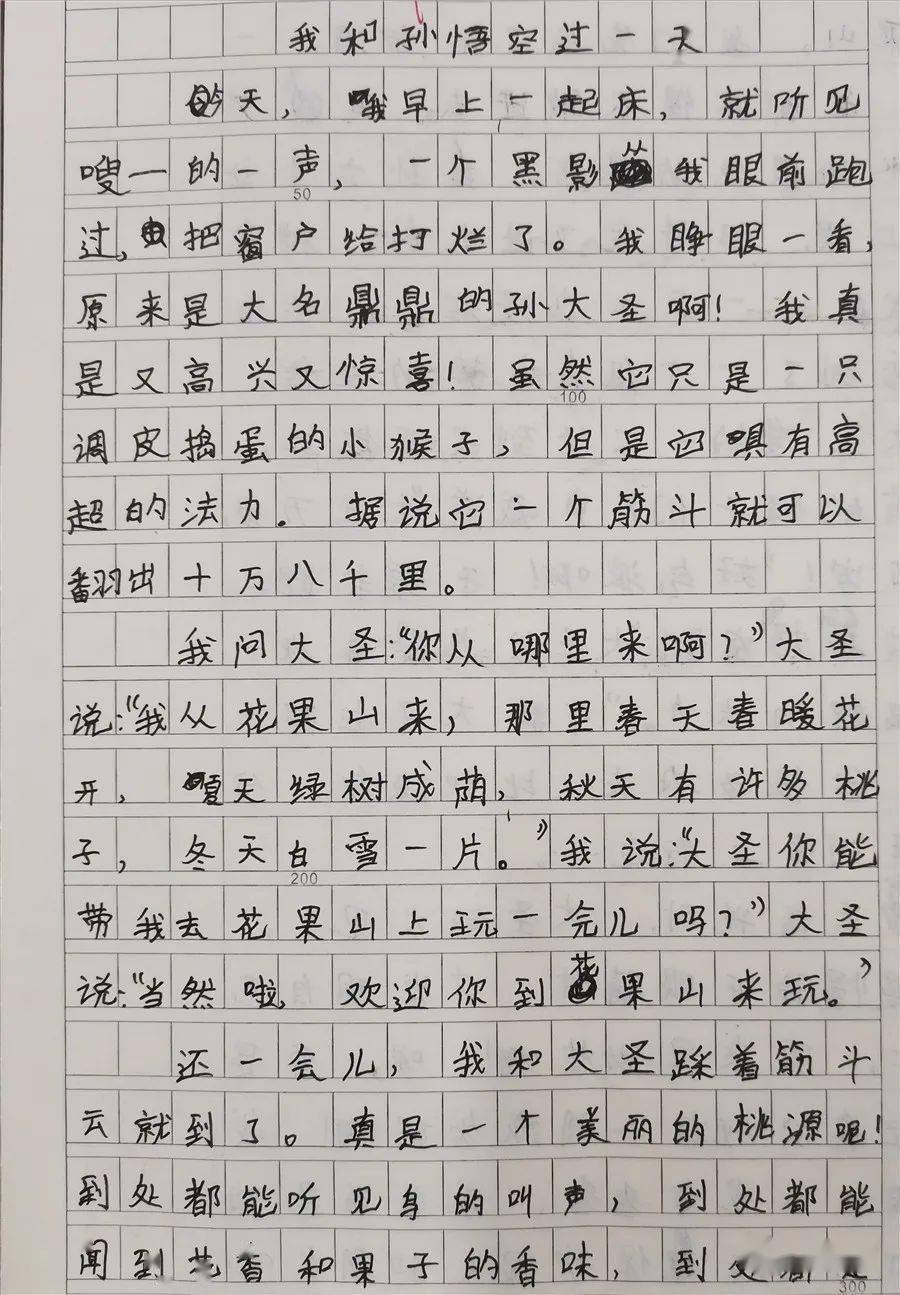 我和孙悟空过一天
今天，我早上一起床，就听见
嗖一的一声，一个黑影从我眼前跑
过，把窗户给打烂了。我睁眼一看，
50
原来是大名鼎鼎的孙大圣啊！我真
是又高兴又惊喜！虽然它只是一只
100
调皮捣蛋的小猴子，但是它具有高
超的法力。据说它一个筋斗就可以
翻出十万八千里。
我问大圣：“你从哪里来啊？”大圣
说：“我从花果山来，那里春天春暖花
开，夏天绿树成荫，秋天有许多桃
子，冬天白雪一片。”我说：“大圣你能
200
带我去花果山上玩一会儿吗？”大圣
说：“当然啦 欢迎你到花果山来玩。”
还一会儿，我和大圣踩着筋斗
云就到了。真是一个美丽的桃源呢！
到处都能听见鸟的叫声，到处都能
闻到花香和果子的香味，到
300